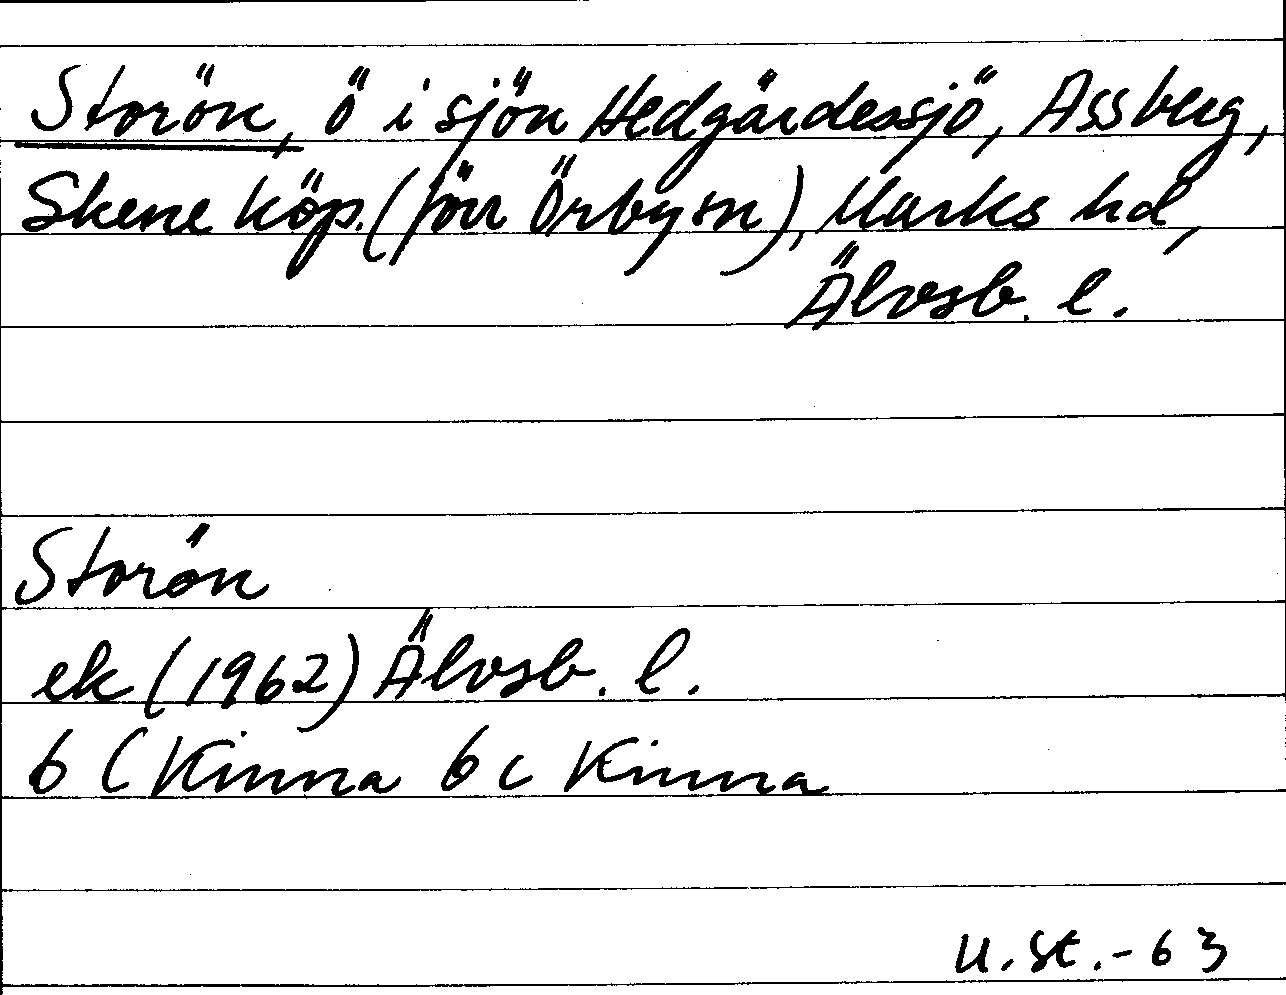 Storön, ö i sjön Hedgärdessjö, Assberg,
Skene köp. (förr Örby sn), Marks hd,
Älvsb. l.
Storön
ek (1962) Älvsb. l.
6 C Kinna 6 c Kinna
U. St. - 63